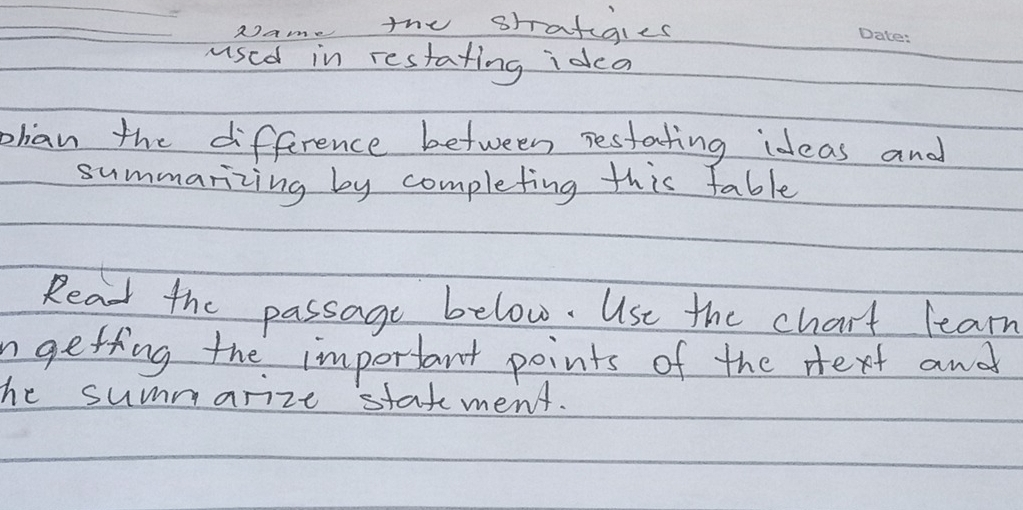 Name the strategies
Date:
used in restating idea
plian the difference between restating ideas and
summarizing by completing this table
Read the passage below. Use the chart learn
n getting the important points of the text and
he summarize statement.